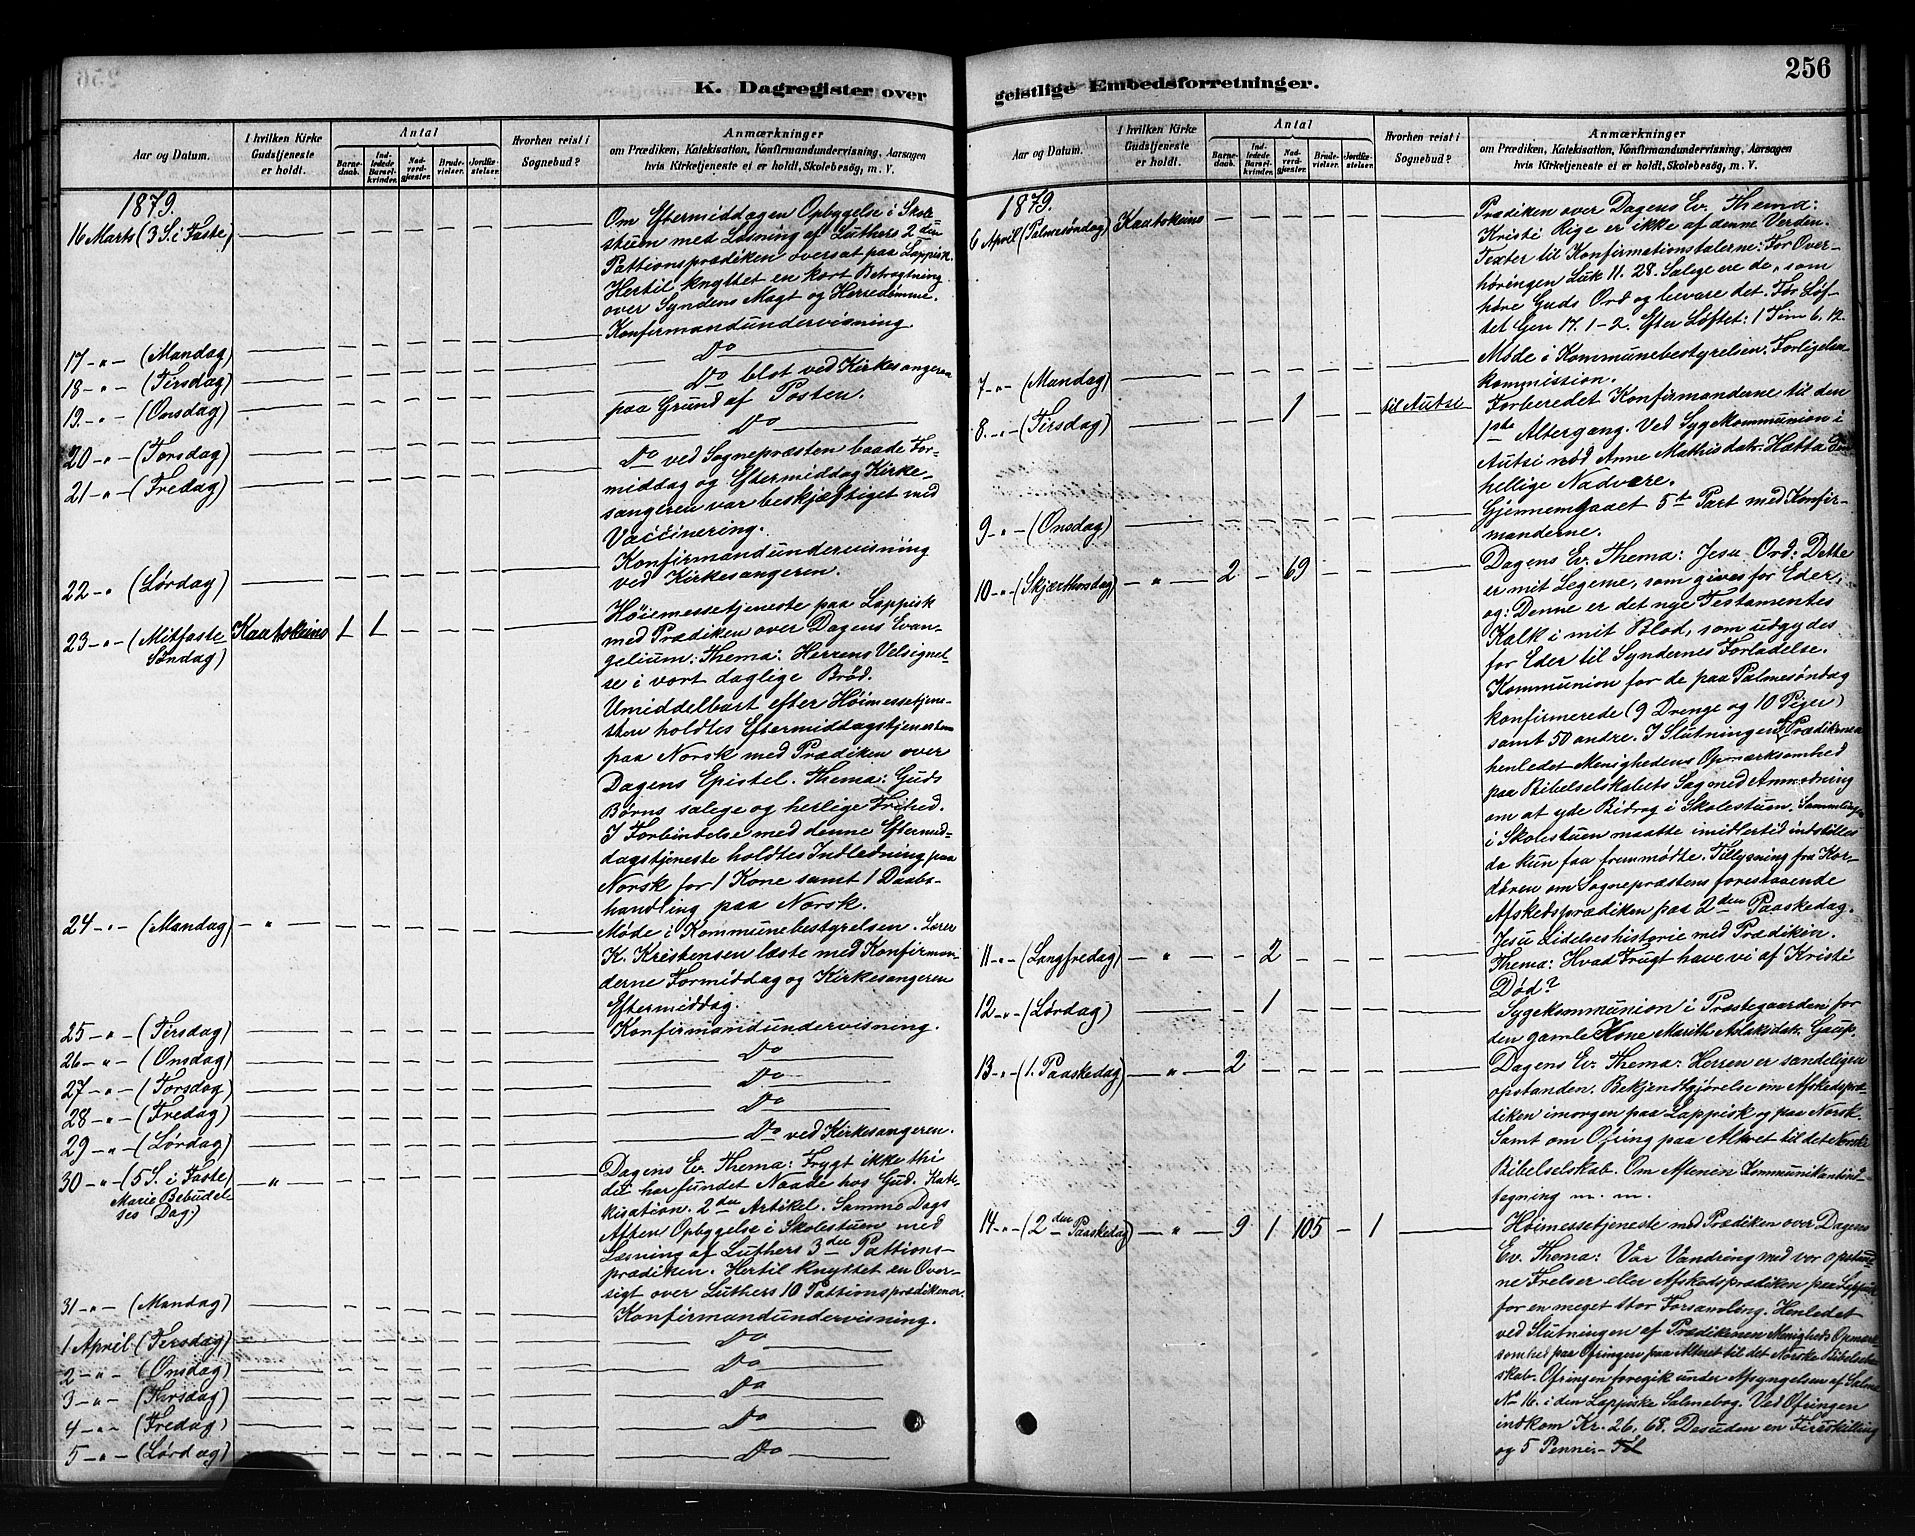 256
K. Dagregister over
geistlige Embedsforretninger.
Aar og Datum.
I hvilken Kirke Gudstjeneste er holdt.
Antal
Barnedaab.
Indledede Barselkvinder.
Nadverdgjæster.
Brudevielser.
Jordfæstelser.
Hvorhen reist i Sognebud?
Anmærkninger
om Prædiken, Katekisation, Konfirmandundervisning, Aarsagen
hvis Kirketjeneste ei er holdt, Skolebesög, m. V.
1879.
16 Marts (3 S. i Faste)
Om Eftermiddagen Opbyggelse i Skole-
stuen med Læsning af Luthers 2den
Pattionsprædiken oversat paa Lappisk.
Hertil knyttet en kort Betragtning
over Syndens Magt og Herredømme.
Konfirmandundervisning.
17 -"- (Mandag) Do
18 -"- (Tirsdag) Do blot ved Kirkesangeren
19 -"- (Onsdag) paa Grund af Posten.
20 -"- (Torsdag) Do
21 -"- (Fredag) Do ved Sognepræsten baade For-
middag og Eftermiddag Kirke-
sangeren var beskjæftiget med
Vaccinering.
22 -"- (Lørdag) Konfirmandundervisning
ved Kirkesangeren.
23 -"- (Mitfaste Søndag) Kautokeino 1 1
Høimessetjeneste paa Lappisk
med Prædiken over Dagens Evan-
gelium: Thema: Herrens Velsignel-
se i vort daglige Brød.
Umiddelbart efter Høimessetjene-
sten holdtes Eftermiddagstjenesten
paa Norsk med Prædiken over
Dagens Epistel. Thema: Guds
Børns salige og herlige Frihed.
I Forbindelse med denne Eftermid-
dagstjeneste holdtes Indledning paa
Norsk for 1 Kone samt 1 Daabs-
handling paa Norsk.
24 -"- (Mandag) " Møde i Kommunebestyrelsen. Lærer
K. Kristensen læste med Konfirman-
derne Formiddag og Kirkesangeren
Eftermiddag.
25 -"- (Tirsdag) Konfirmandundervisning.
26 -"- (Onsdag) Do
27 -"- (Torsdag) Do
28 -"- (Fredag) Do
29 -"- (Lørdag) Do ved Kirkesangeren.
30 -"- (5 S. i Faste, Marie Bebudelses Dag.) "
Dagens Ev. Thema: Frygt ikke thi
du har fundet Naade hos Gud. Kate-
kisation. 2den Artikel. Samme Dags
Aften Opbyggelse i Skolestuen med
Læsning af Luthers 3die Pattions-
prædiken. Hertil knyttet en Over-
sigt over Luthers 10 Pattionsprædikener.
31 -"- (Mandag) Konfirmandundervisning.
1 April (Tirsdag) Do
2 -"- (Onsdag) Do
3 -"- (Torsdag) Do
4 -"- (Fredag) Do
5 -"- (Lørdag) Do
Aar og Datum.
I hvilken Kirke Gudstjeneste er holdt.
Antal
Barnedaab.
Indledede Barselkvinder.
Nadverdgjæster.
Brudevielser.
Jordfæstelser.
Hvorhen reist i Sognebud?
Anmærkninger
om Prædiken, Katekisation, Konfirmandundervisning, Aarsagen
hvis Kirketjeneste ei er holdt, Skolebesög, m. V.
1879.
6 April (Palmesøndag) Kautokeino
Prædiken over Dagens Ev. Thema:
Kristi Rige er ikke af denne Verden.
Texter til Konfirmationstalerne: For Over-
høringen Luk 11. 28. Salige ere de, som
høre Guds Ord og bevare det. For Løf-
tet Gen 17. 1-2. Efter Løftet: 1 Tim 6, 12.
7 -"- (Mandag) Møde i Kommunebestyrelsen. Forligelses
kommission.
8 -"- (Tirsdag) 1 til Autsi Forberedet Konfirmanderne til den
1ste Altergang. Ved Sygekommunion i
Autsi nød Anne Mathisdatr. Hætta den
hellige Nadvere.
9 -"- (Onsdag) Gjennemgaaet 5te Part med Konfir-
manderne.
10 -"- (Skjærthorsdag) " 2 69
Dagens Ev. Thema: Jesu Ord: Dette
er mit Legeme, som gives for Eder,
og: Denne er det nye Testamentes
Kalk i mit Blod, som udgydes
for Eder til Syndernes Forladelse.
Kommunion for de paa Palmesøndag
konfirmerede (9 Drenge og 10 Piger)
samt 50 andre. I Slutningen af Prædikenen
henledet Menighedens Opmærksomhed
paa Bibelselskabets Sag med Anmodning
om at yde Bidrag i Skolestuen. Samlingen
i Skolestuen maatte imidlertid indstilles
da kun faa fremmødte. Tillysning fra Kor-
døren om Sognepræstens forestaaende
Afskedsprædiken paa 2den Paaskedag.
11 -"- (Langfredag) " 2 Jesu Lidelseshistorie med Prædiken.
Thema: Hvad Frugt have vi af Kristi
Død?
12 -"- (Lørdag) 1 Sygekommunion i Præstegaarden for
den gamle Kone Marith Aslaksdatr. Gaup.
13 -"- (1. Paaskedag) " 2 Dagens Ev. Thema: Herren er sandeligen
opstanden. Bekjendtgjørelse om Afskedspræ-
diken imorgen paa Lappisk og paa Norsk.
Samt om Ofring paa Altret til det Norske
Bibelselskab. Om Aftenen Kommunikantind-
tegning m. m.
14 -"- (2den Paaskedag) " 9 1 105 1
Høimessetjeneste med Prædiken over Dagens
Ev. Thema: Vor Vandring med vor opstand-
ne Frelser eller Afskedsprædiken paa Lappisk
for en meget stor Forsamling. Henledet
ved Slutningen af Prædikenen Menigheds Opmærk
somhed paa Ofringen paa Altret til det Norske Bibelsel-
skab. Ofringen foregik under Afsyngelsen af Salme
No 16. i den Lappiske Salmebog. Ved Ofringen
indkom Kr. 26, 68. Desuden en Fireskilling
og 5 Penni.